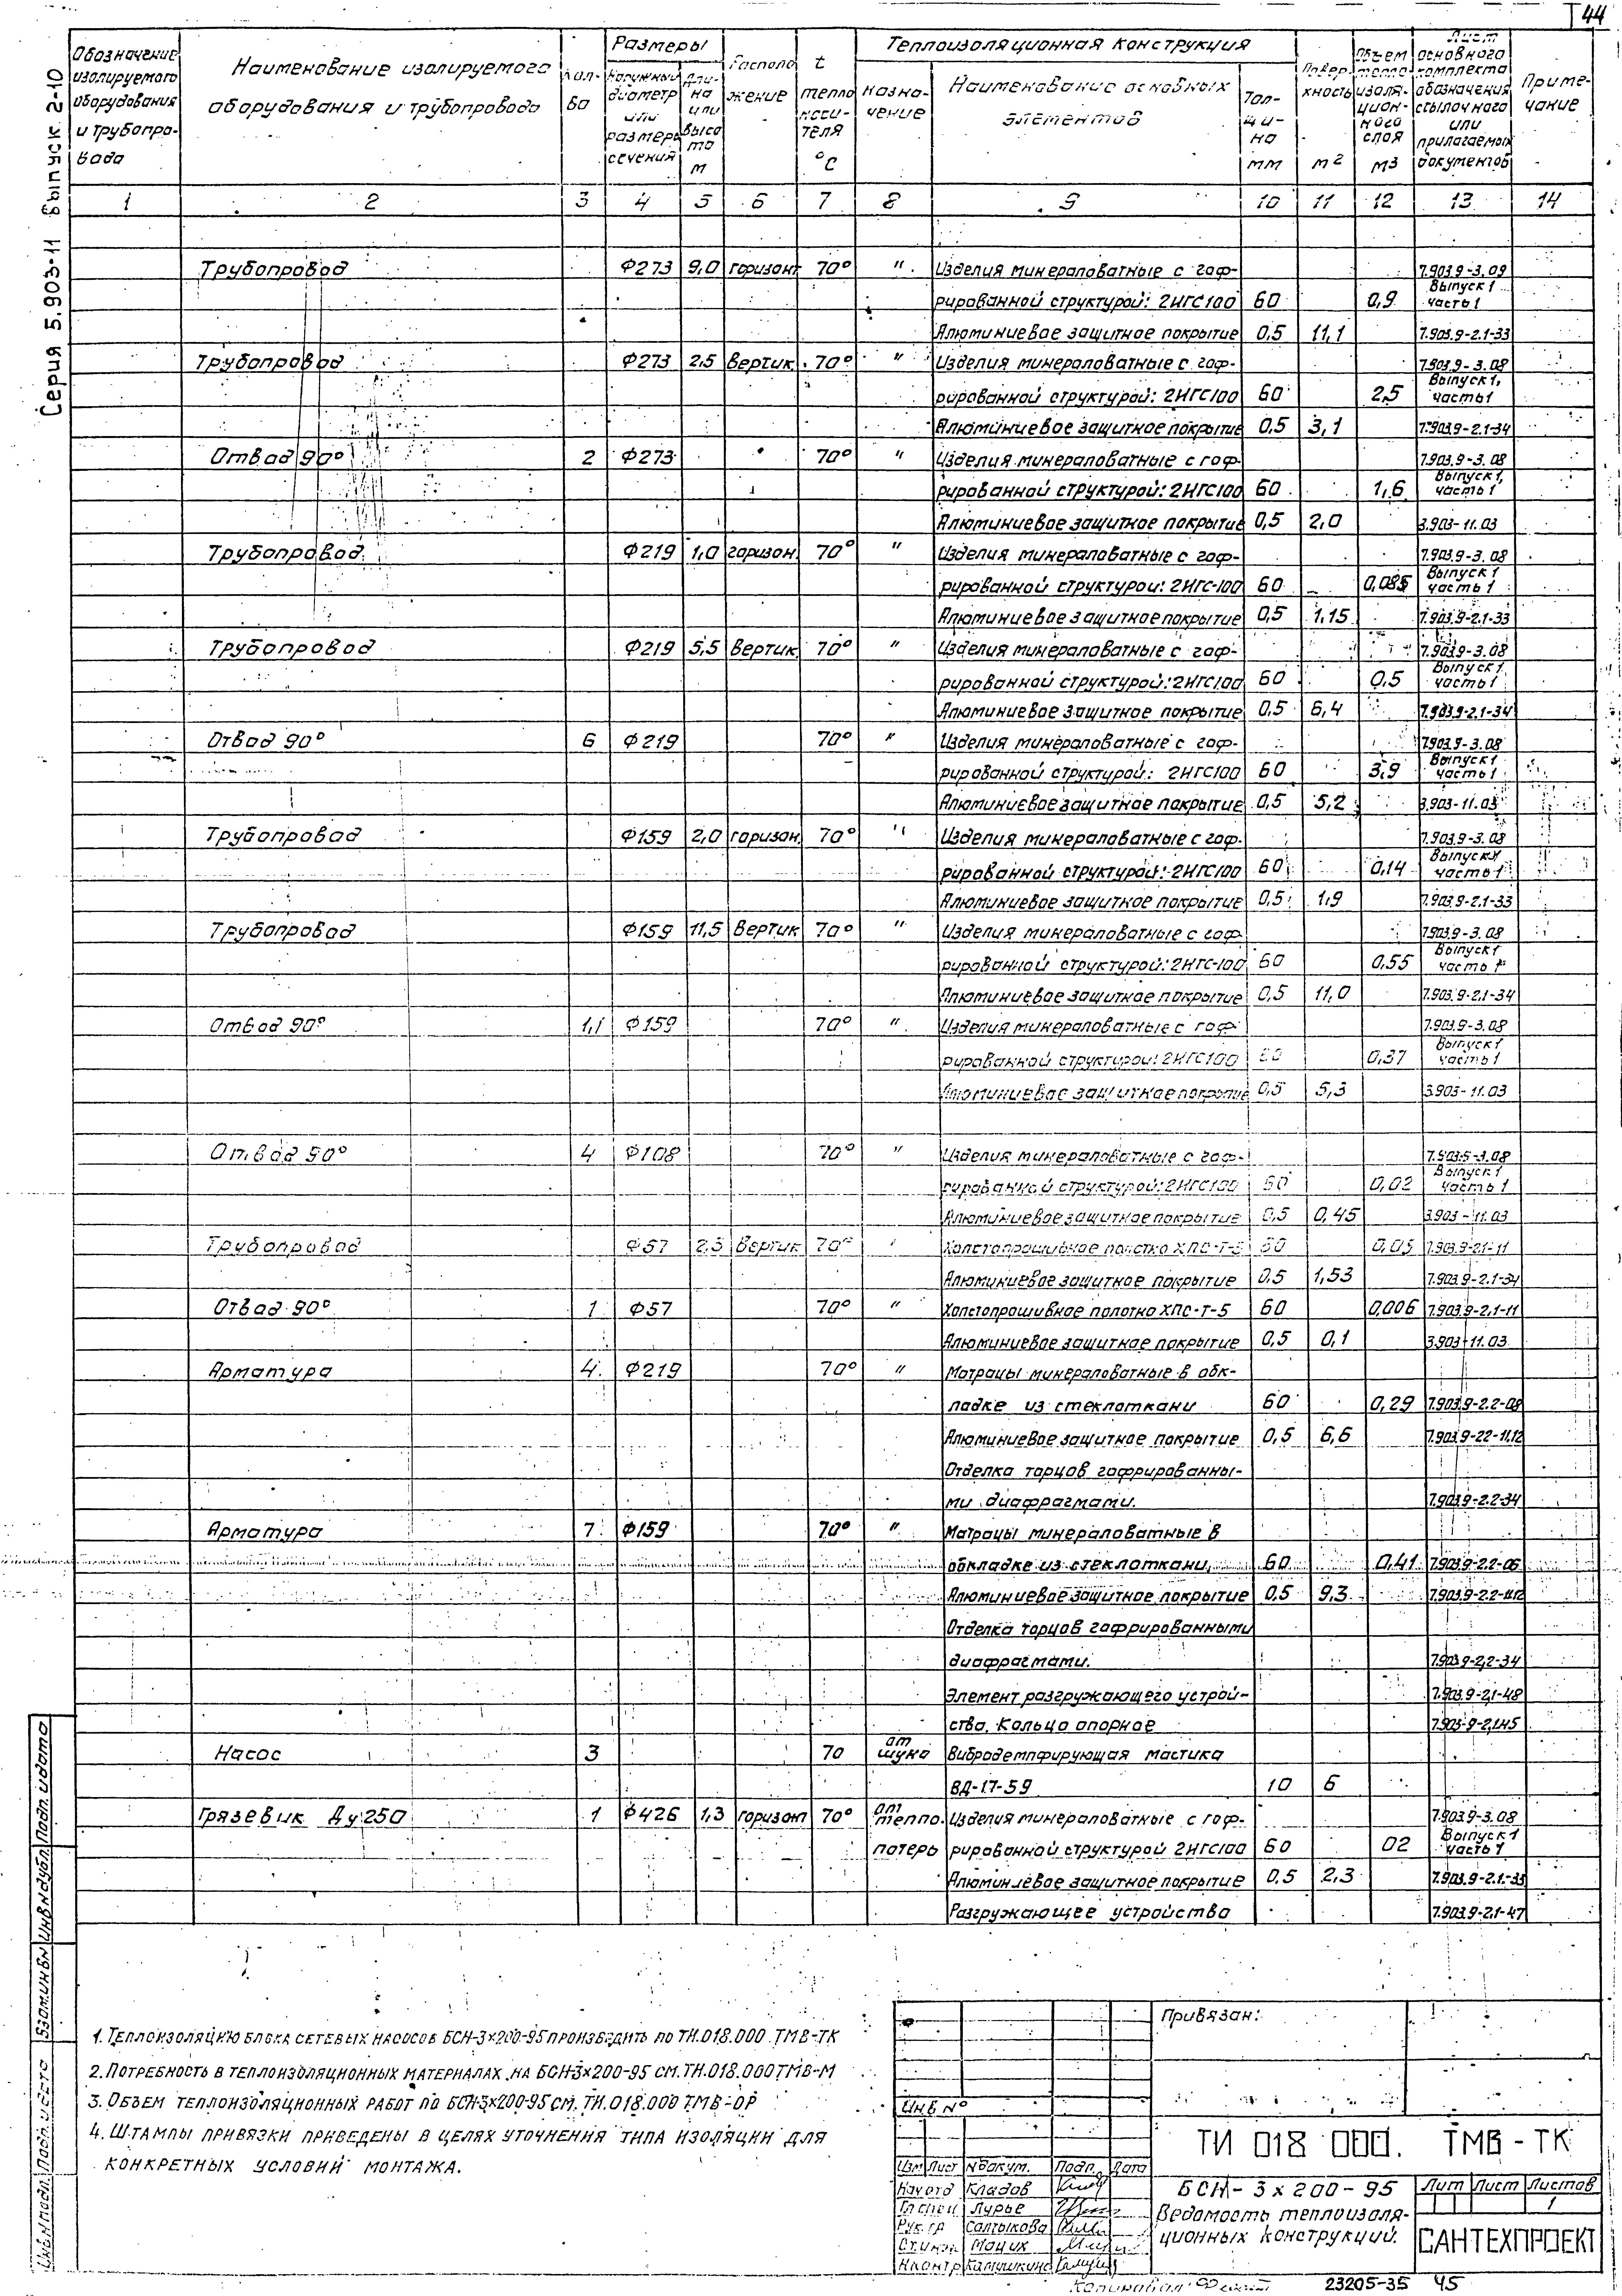 44
Серия 5.903-11 Выпуск 2-10
Обозначение изолируемого оборудования и трубопровода
Наименование изолируемого оборудования и трубопровода
Кол-во
Размеры
Наружный диаметр или размеры сечения
Длина или высота м
Располо жение
t теплоносителя °C
Теплоизоляционная конструкция
Назначение
Наименование основных элементов
Толщина мм
Поверхность м2
Объем теплоизоляционного слоя м3
Лист основного комплекта обозначения ссылочного или прилагаемых документов
Примечание
1 2 3 4 5 6 7 8 9 10 11 12 13 14
Трубопровод Ф273 9,0 горизонт 70° " Изделия минераловатные с гоф- 7.903.9-3.09
рированной структурой: 2НГС100 60 0,9 Выпуск 1 часть 1
Алюминиевое защитное покрытие 0,5 11,1 7.903.9-2.1-33
Трубопровод Ф273 2,5 Вертик. 70° " Изделия минераловатные с гоф- 7.903.9-3.08
рированной структурой: 2НГС100 60 2,5 Выпуск 1, часть 1
Алюминиевое защитное покрытие 0,5 3,1 7.903.9-2.1-34
Отвод 90° 2 Ф273 70° " Изделия минераловатные с гоф- 7.903.9-3.08
рированной структурой: 2НГС100 60 1,6 Выпуск 1, часть 1
Алюминиевое защитное покрытие 0,5 2,0 3.903-11.03
Трубопровод Ф219 1,0 горизон. 70° " Изделия минераловатные с гоф- 7.903.9-3.08
рированной структурой: 2НГС-100 60 0,085 Выпуск 1 часть 1
Алюминиевое защитное покрытие 0,5 1,15 7.903.9-2.1-33
Трубопровод Ф219 5,5 Вертик 70° " Изделия минераловатные с гоф- 7.903.9-3.08
рированной структурой: 2НГС100 60 0,5 Выпуск 1 часть 1
Алюминиевое защитное покрытие 0,5 6,4 7.903.9-2.1-34
Отвод 90° 6 Ф219 70° " Изделия минераловатные с гоф- 7.903.9-3.08
рированной структурой: 2НГС100 60 3,9 Выпуск 1 часть 1
Алюминиевое защитное покрытие 0,5 5,2 3.903-11.03
Трубопровод Ф159 2,0 горизон. 70° " Изделия минераловатные с гоф- 7.903.9-3.08
рированной структурой: 2НГС100 60 0,14 Выпуск 1 часть 1
Алюминиевое защитное покрытие 0,5 1,9 7.903.9-2.1-33
Трубопровод Ф159 11,5 Вертик 70° " Изделия минераловатные с гоф- 7.903.9-3.08
рированной структурой: 2НГС-100 60 0,55 Выпуск 1 часть 1
Алюминиевое защитное покрытие 0,5 11,0 7.903.9-2.1-34
Отвод 90° 1,1 Ф159 70° " Изделия минераловатные с гоф- 7.903.9-3.08
рированной структурой: 2НГС100 60 0,37 Выпуск 1 часть 1
Алюминиевое защитное покрытие 0,5 5,3 3.903-11.03
Отвод 90° 4 Ф108 70° " Изделия минераловатные с гоф- 7.903.9-3.08
рированной структурой: 2НГС100 60 0,02 Выпуск 1 часть 1
Алюминиевое защитное покрытие 0,5 0,45 3.903-11.03
Трубопровод Ф57 2,5 Вертик 70° " Холстопрошивное полотно ХПС-Т-5 60 0,05 7.903.9-2.1-11
Алюминиевое защитное покрытие 0,5 1,53 7.903.9-2.1-34
Отвод 90° 1 Ф57 70° " Холстопрошивное полотно ХПС-Т-5 60 0,006 7.903.9-2.1-11
Алюминиевое защитное покрытие 0,5 0,1 3.903-11.03
Арматура 4 Ф219 70° " Матрацы минераловатные в обк-
ладке из стеклоткани 60 0,29 7.903.9-2.2-08
Алюминиевое защитное покрытие 0,5 6,6 7.903.9-22-11,12
Отделка торцов гофрированны-
ми диафрагмами. 7.903.9-2.2-34
Арматура 7 Ф159 70° " Матрацы минераловатные в
обкладке из стеклоткани 60 0,41 7.903.9-2.2-06
Алюминиевое защитное покрытие 0,5 9,3 7.903.9-2.2-11,12
Отделка торцов гофрированными
диафрагмами. 7.903.9-2.2-34
Элемент разгружающего устрой- 7.903.9-2.1-48
ства. Кольцо опорное 7.903.9-2.1-45
Насос 3 70 от шума Вибродемпфирующая мастика
ВД-17-59 10 6
Грязевик Ду 250 1 Ф426 1,3 горизонт 70° от тепло- Изделия минераловатные с гоф- 7.903.9-3.08
потерь рированной структурой 2НГС100 60 02 Выпуск 1 часть 1
Алюминиевое защитное покрытие 0,5 2,3 7.903.9-2.1-33
Разгружающее устройство 7.903.9-2.1-47
1. Теплоизоляцию блока сетевых насосов БСН-3×200-95 производить по ТИ.018.000 ТМВ-ТК
2. Потребность в теплоизоляционных материалах на БСН-3×200-95 см. ТИ.018.000 ТМВ-М
3. Объем теплоизоляционных работ по БСН-3×200-95 см. ТИ.018.000 ТМВ-ОР
4. Штампы привязки приведены в целях уточнения типа изоляции для
конкретных условий монтажа.
Инв.№ подл. Подп. и дата Взам.инв№ Инв№дубл. Подп. и дата
Привязан:
Инв №
ТИ 018 000. ТМВ-ТК
Изм Лист № докум. Подп. Дата
Нач отд Кладов
Гл спец Лурье
Рук. гр Салтыкова
Ст. инж Мацих
Н контр Камушкина
БСН-3×200-95
Ведомость теплоизоля-
ционных конструкций.
Лит Лист Листов
1
САНТЕХПРОЕКТ
Копировал
23205-35 45